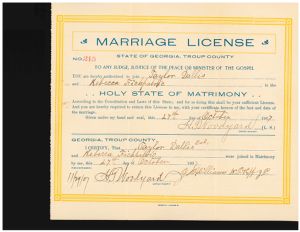 MARRIAGE LICENSE
NO. 215
STATE OF GEORGIA, TROUP COUNTY
TO ANY JUDGE, JUSTICE OF THE PEACE OR MINISTER OF THE GOSPEL
YOU are hereby authorized to join Taylor Dallis
and Rebecca in the
HOLY STATE OF MATRIMONY
According to the Constitution and Laws of this State; and for so doing this shall be your sufficient License.
And you are hereby required to return this License to me, with your certificate hereon of the fact and date of
the marriage.
Given under my hand and seal, this 27th day of October
(L. S.)
GEORGIA, TROUP COUNTY.
I CERTIFY, That Taylor Dallis Col.
and Rebecca were joined in Matrimony
by me, this 27th day of October